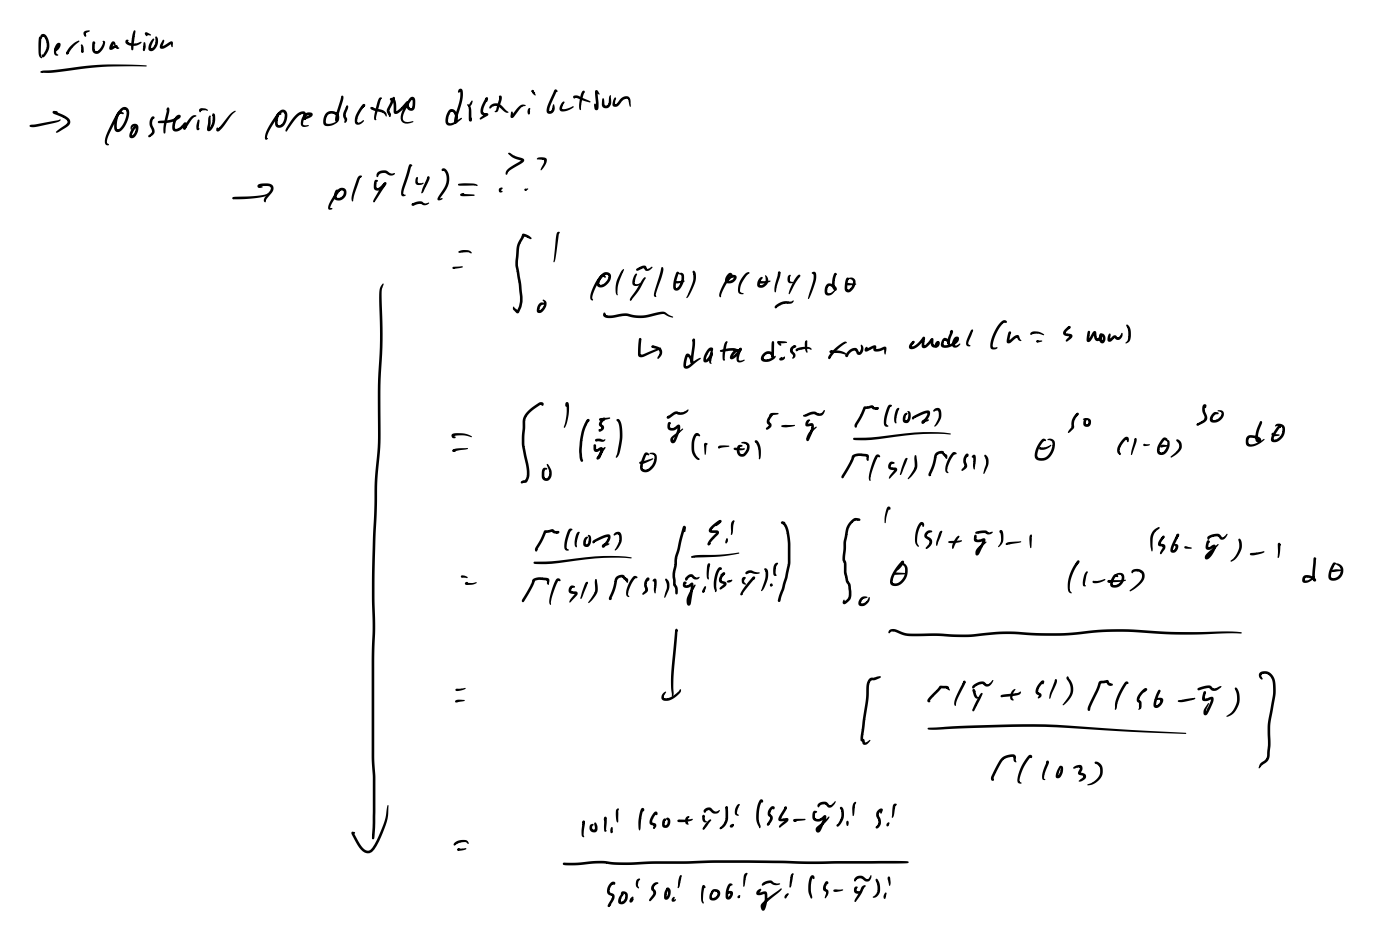 Derivation
→ Posterior predictive distribution
→ p(ỹ|y̰) = ??
= ∫₀¹ p(ỹ|θ) p(θ|y̰) dθ
↳ data dist from model (n = 5 now)
= ∫₀¹ (5 ỹ) θ^ỹ (1-θ)^(5-ỹ) Γ(102)/(Γ(51)Γ(51)) θ^50 (1-θ)^50 dθ
= Γ(102)/(Γ(51)Γ(51)) (5!/(ỹ!(5-ỹ)!)) ∫₀¹ θ^((51+ỹ)-1) (1-θ)^((56-ỹ)-1) dθ
= ↓ [Γ(ỹ+51)Γ(56-ỹ)/Γ(103)]
= 101! (50+ỹ)! (55-ỹ)! 5! / (50! 50! 106! ỹ! (5-ỹ)!)